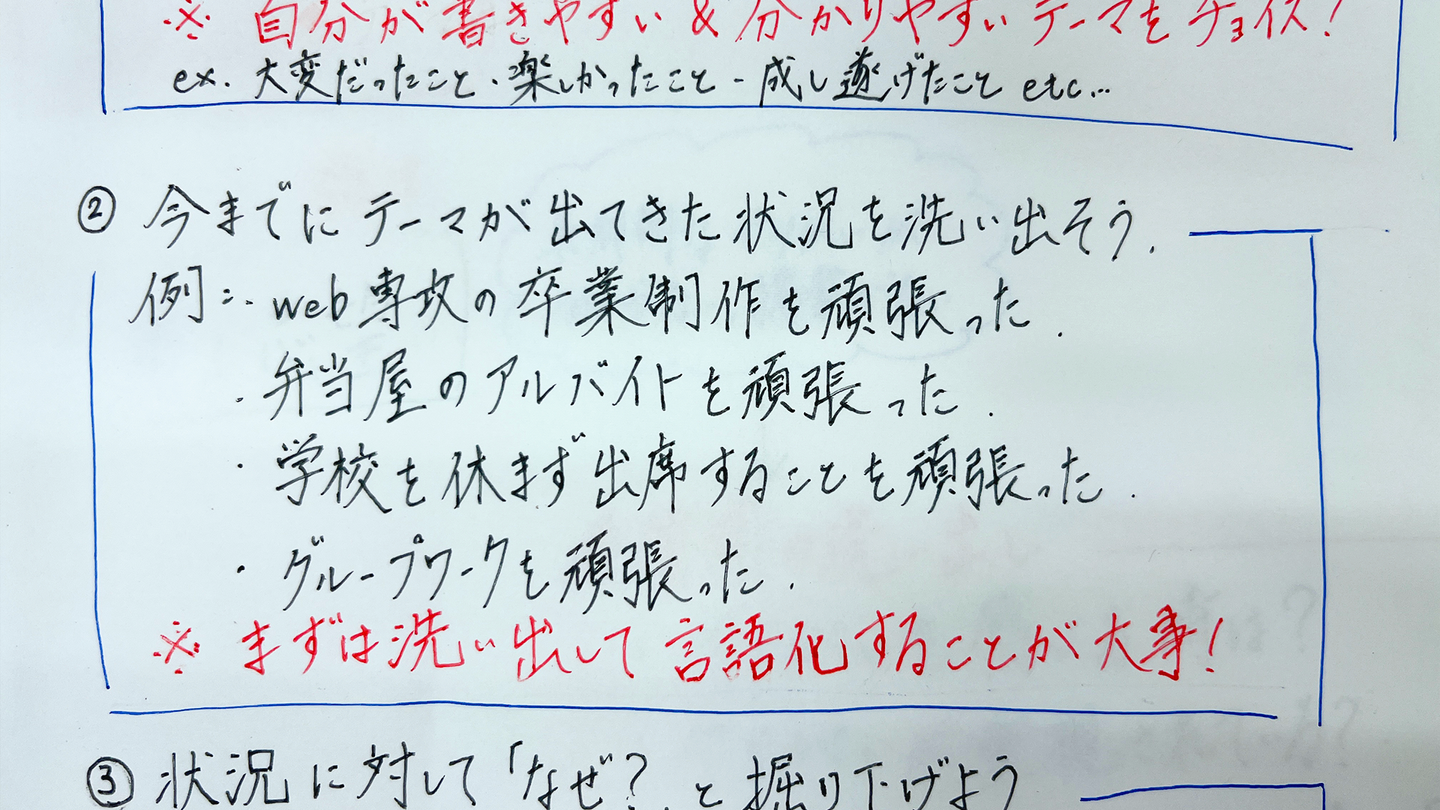 ※ 自分が書きやすい & 分かりやすいテーマをチョイス!
ex. 大変だったこと・楽しかったこと・成し遂げたこと etc...
② 今までにテーマが出てきた状況を洗い出そう.
例:・web専攻の卒業制作を頑張った.
・弁当屋のアルバイトを頑張った.
・学校を休まず出席することを頑張った.
・グループワークを頑張った.
※ まずは洗い出して言語化することが大事!
③ 状況に対して「なぜ?」と掘り下げよう